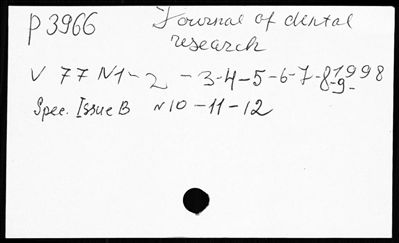 P 3966 Journal of dental
research
V 77 N1-2 -3-4-5-6-7-8-9- 1998
Spec. Issue B N10-11-12